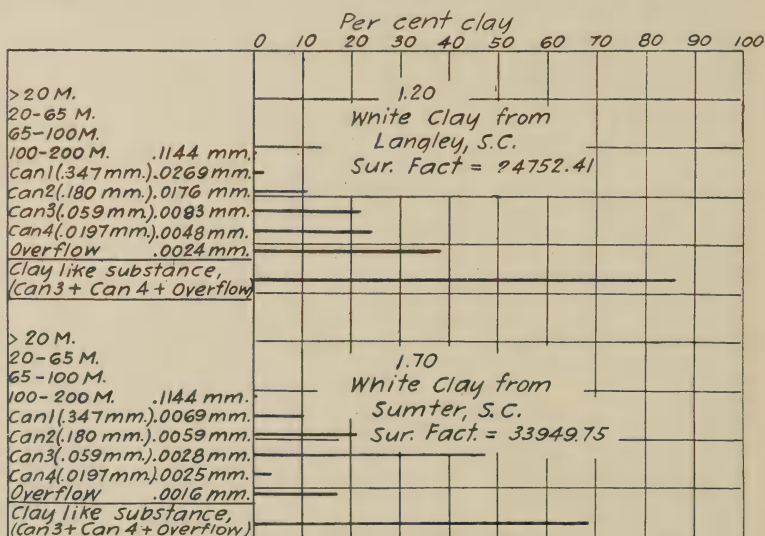 Per cent clay
0 10 20 30 40 50 60 70 80 90 100
> 20 M.
20-65 M.
65-100 M.
100-200 M. .1144 mm.
Can1(.347 mm.).0269 mm.
Can2(.180 mm.).0176 mm.
Can3(.059 mm.).0083 mm.
Can4(.0197mm.).0048 mm.
Overflow .0024 mm.
Clay like substance,
(Can3 + Can 4 + Overflow)
1.20
White Clay from
Langley, S.C.
Sur. Fact = 24752.41
> 20 M.
20-65 M.
65-100 M.
100-200 M. .1144 mm.
Can1(.347mm.).0069 mm.
Can2(.180 mm.).0059 mm.
Can3(.059mm.).0028 mm.
Can4(.0197mm.).0025 mm.
Overflow .0016 mm.
Clay like substance,
(Can3 + Can 4 + Overflow)
1.70
White Clay from
Sumter, S.C.
Sur. Fact. = 33949.75